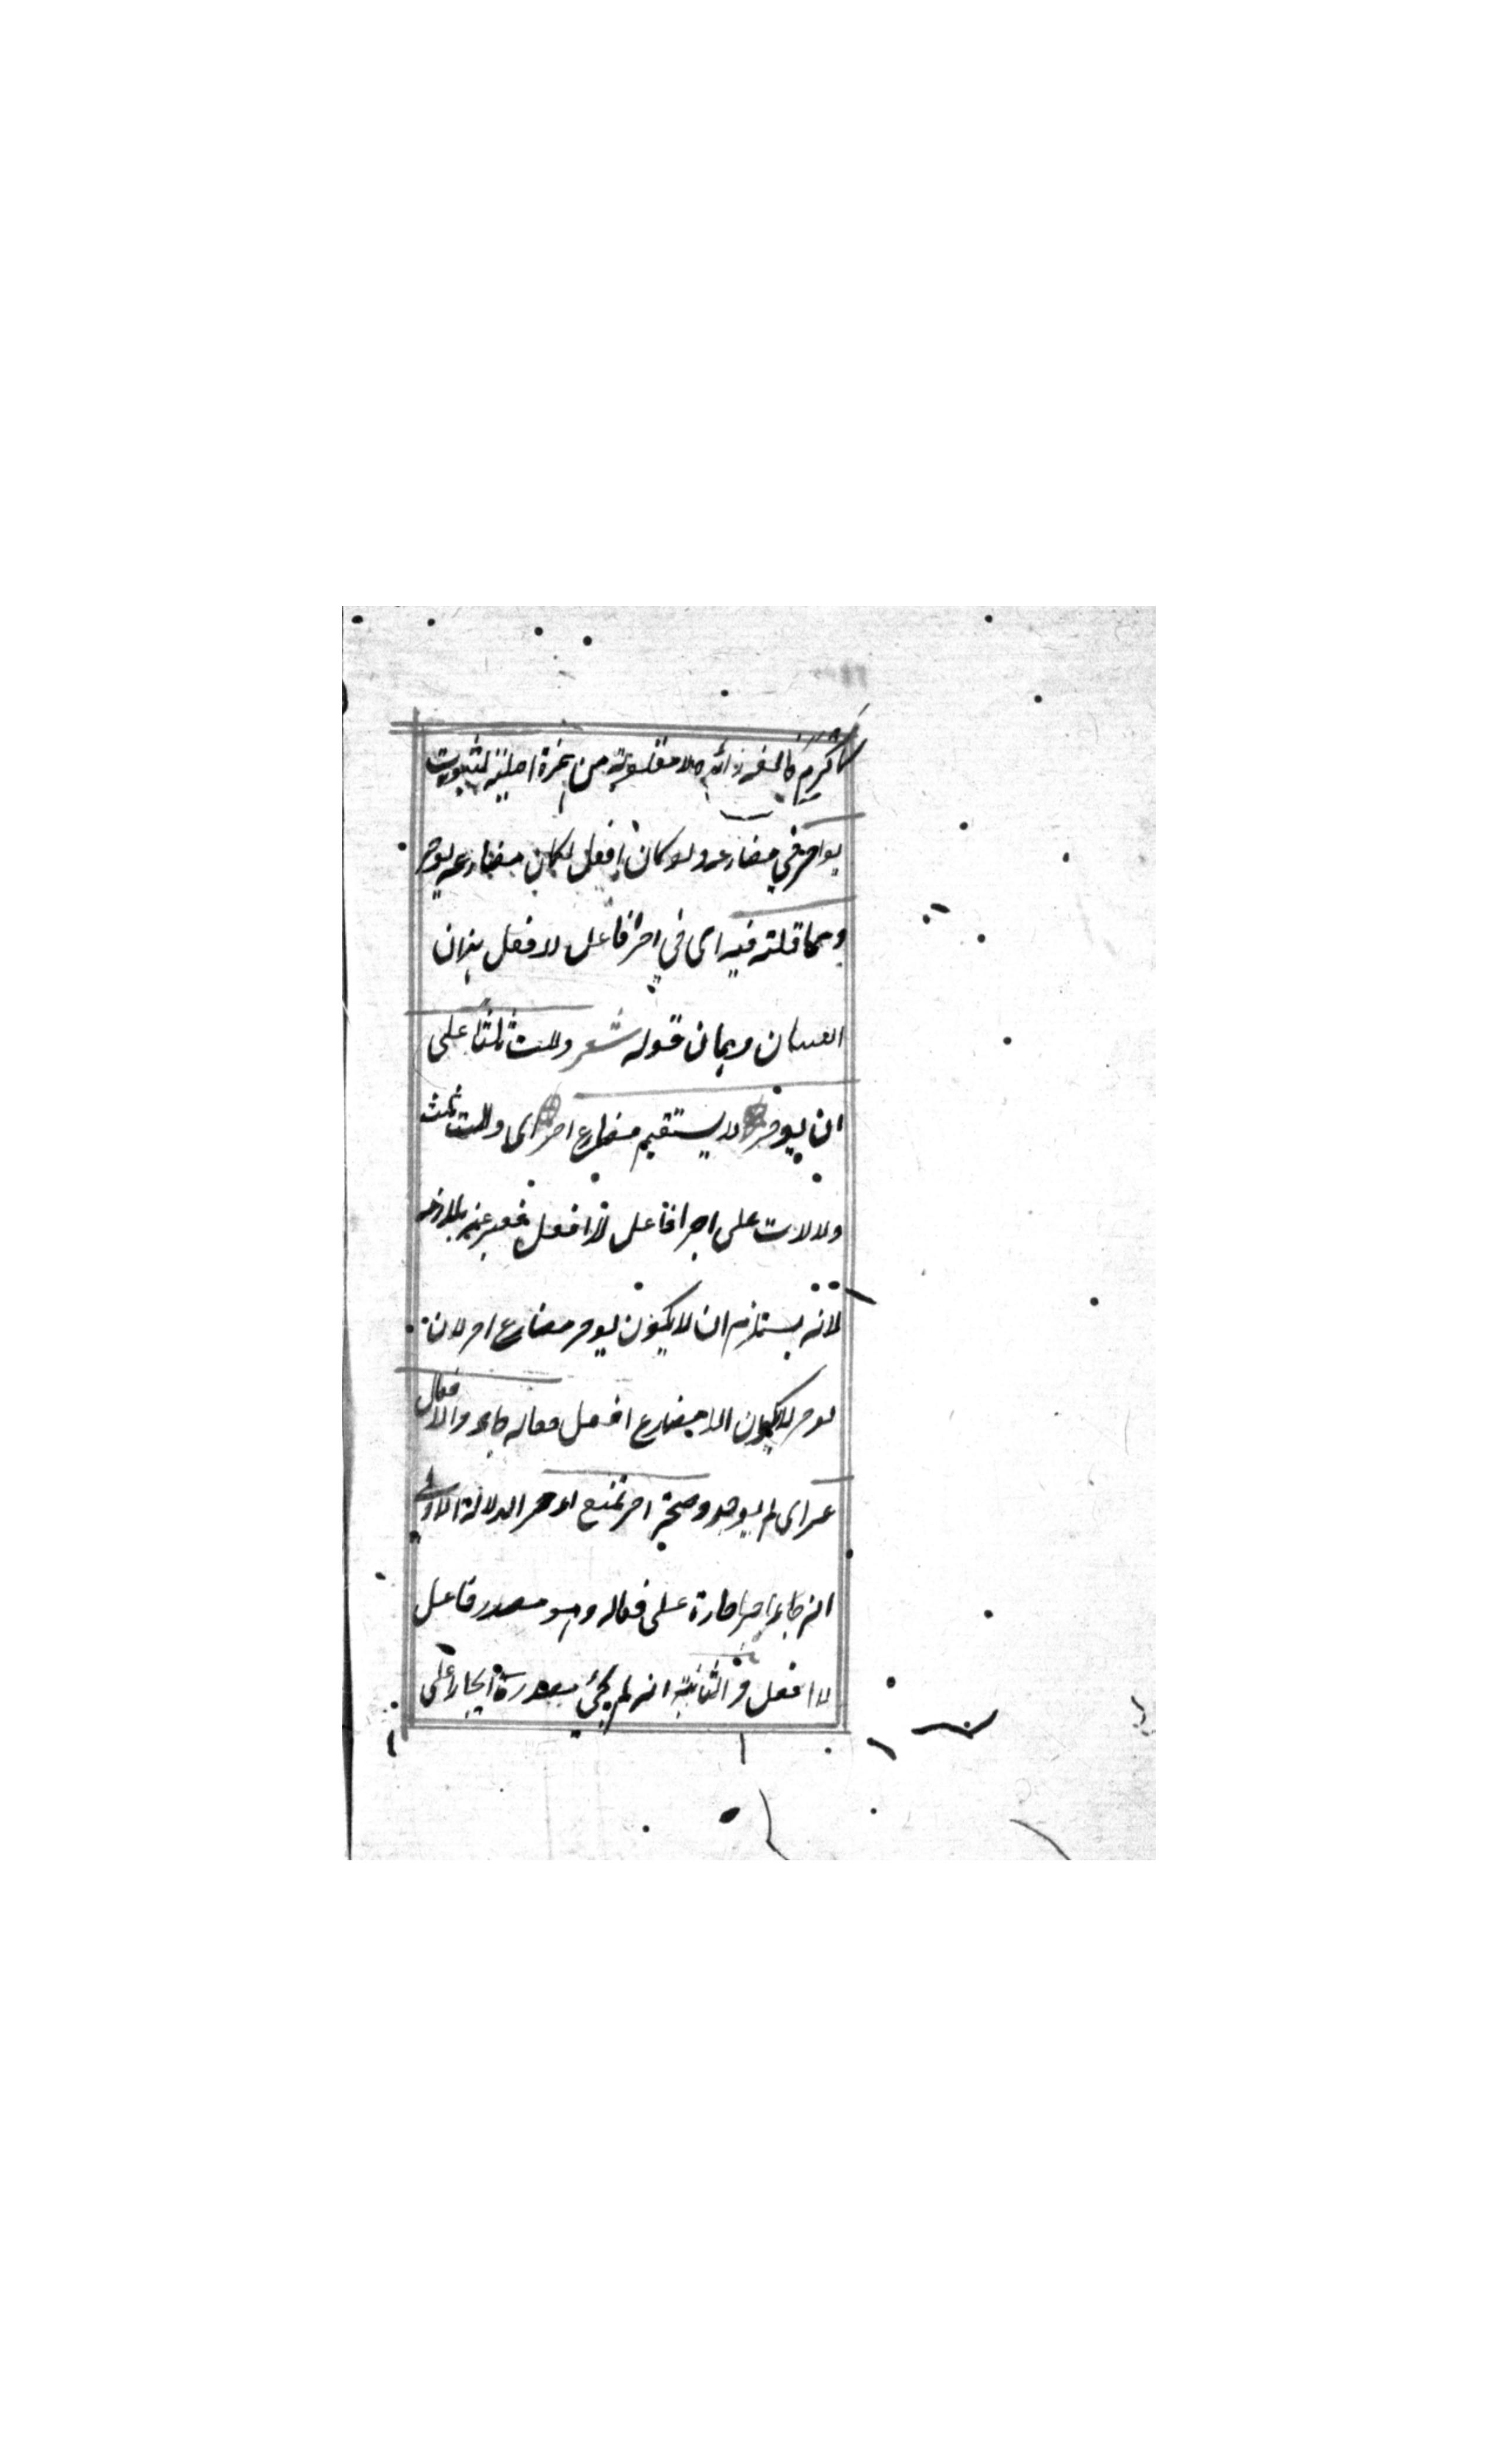 كاكرم فالفه زائدة لا مقلوبة من همزة اصلية لثبوت
يواجر في مضارعه ولو كان افعل لكان مضارعه يوجر
ومما قلته فيه اى في اجر فاعل لا افعل بذان
البيتان وبمان قوله شعر دللت ثلثا على
ان يوجر لا يستقيم مضارع اجر اى دللت ثلث
دلالات على اجر فاعل لا افعل فعبر عنه
لانه يستلزم ان لا يكون يوجر مضارع اجر لان
يوجر لا يكون الا مضارع افعل فعاله جاء والافعال
عز اى لم يوجد وصحة اجر تمنع اوجر الدلالة الاولى
انه جاء اجر اجارة على فعاله وهو مصدر فاعل
لا افعل و الثانية انه لم يجئ مصدره ايجار على